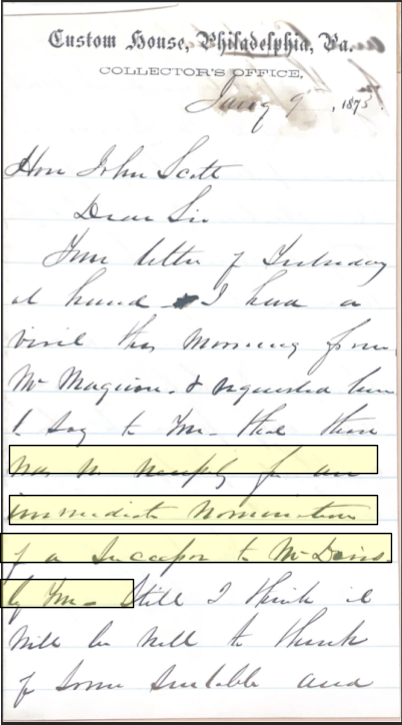 Custom House, Philadelphia, Pa.
COLLECTOR'S OFFICE,
Jany 9th, 1875.
Hon John Scott
Dear Sir
Your letter of Yesterday
at hand - I had a
visit this morning from
Mr Maguire. & requested him
to say to you - that there
was no necessity for an
immediate nomination
of a Successor to Mr Davis.
by you - Still I think it
will be well to think
of some suitable and